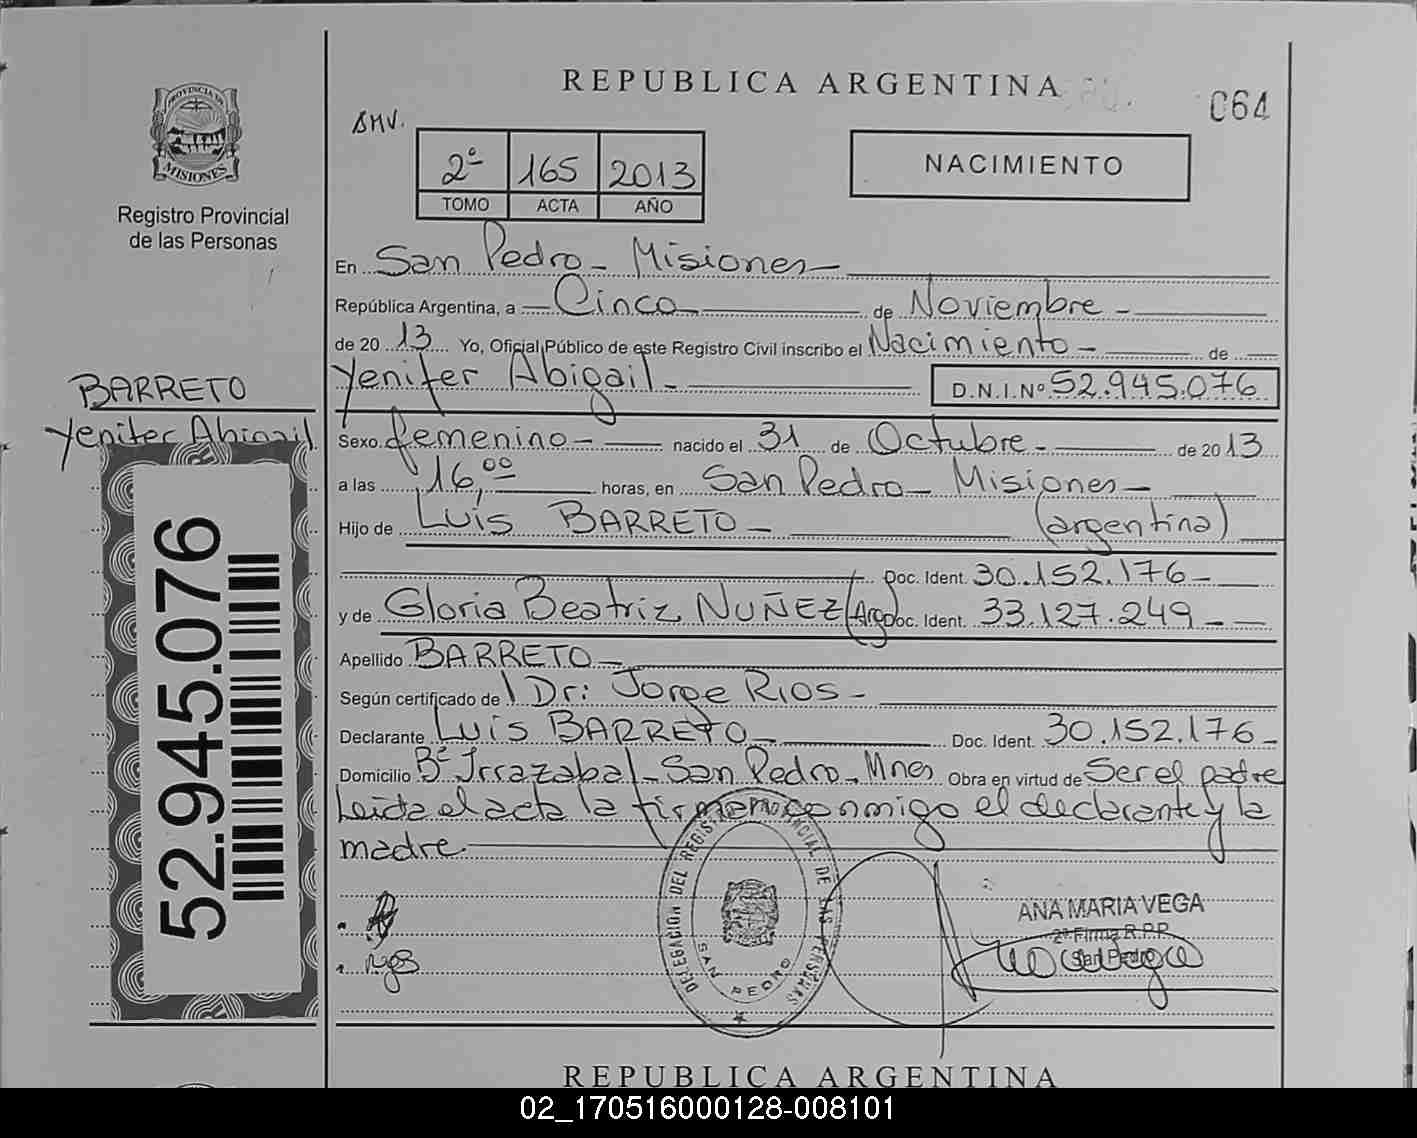 REPUBLICA ARGENTINA
064
BMV.
PROVINCIA DE
MISIONES
Registro Provincial
de las Personas
2º 165 2013
TOMO ACTA AÑO
NACIMIENTO
En San Pedro - Misiones -
República Argentina, a Cinco de Noviembre -
de 20 13 Yo, Oficial Público de este Registro Civil inscribo el Nacimiento - de
Yenifer Abigail - D.N.I.Nº 52.945.076
BARRETO
Yenifer Abigail
Sexo femenino - nacido el 31 de Octubre - de 20 13
a las 16,00 horas, en San Pedro - Misiones -
Hijo de Luis BARRETO - (argentina)
Doc. Ident. 30.152.176 -
y de Gloria Beatriz NUÑEZ (Arg) Doc. Ident. 33.127.249 -
Apellido BARRETO -
Según certificado de Dr: Jorge Rios -
Declarante Luis BARRETO - Doc. Ident. 30.152.176 -
Domicilio Bº Irrazabal - San Pedro - Mnes Obra en virtud de Ser el padre
Leida el acta la firman conmigo el declarante y la
madre.
52.945.076
DELEGACION DEL REGISTRO PROVINCIAL DE LAS PERSONAS
SAN PEDRO
ANA MARIA VEGA
2ª Firma R.P.P.
San Pedro
REPUBLICA ARGENTINA
02_170516000128-008101